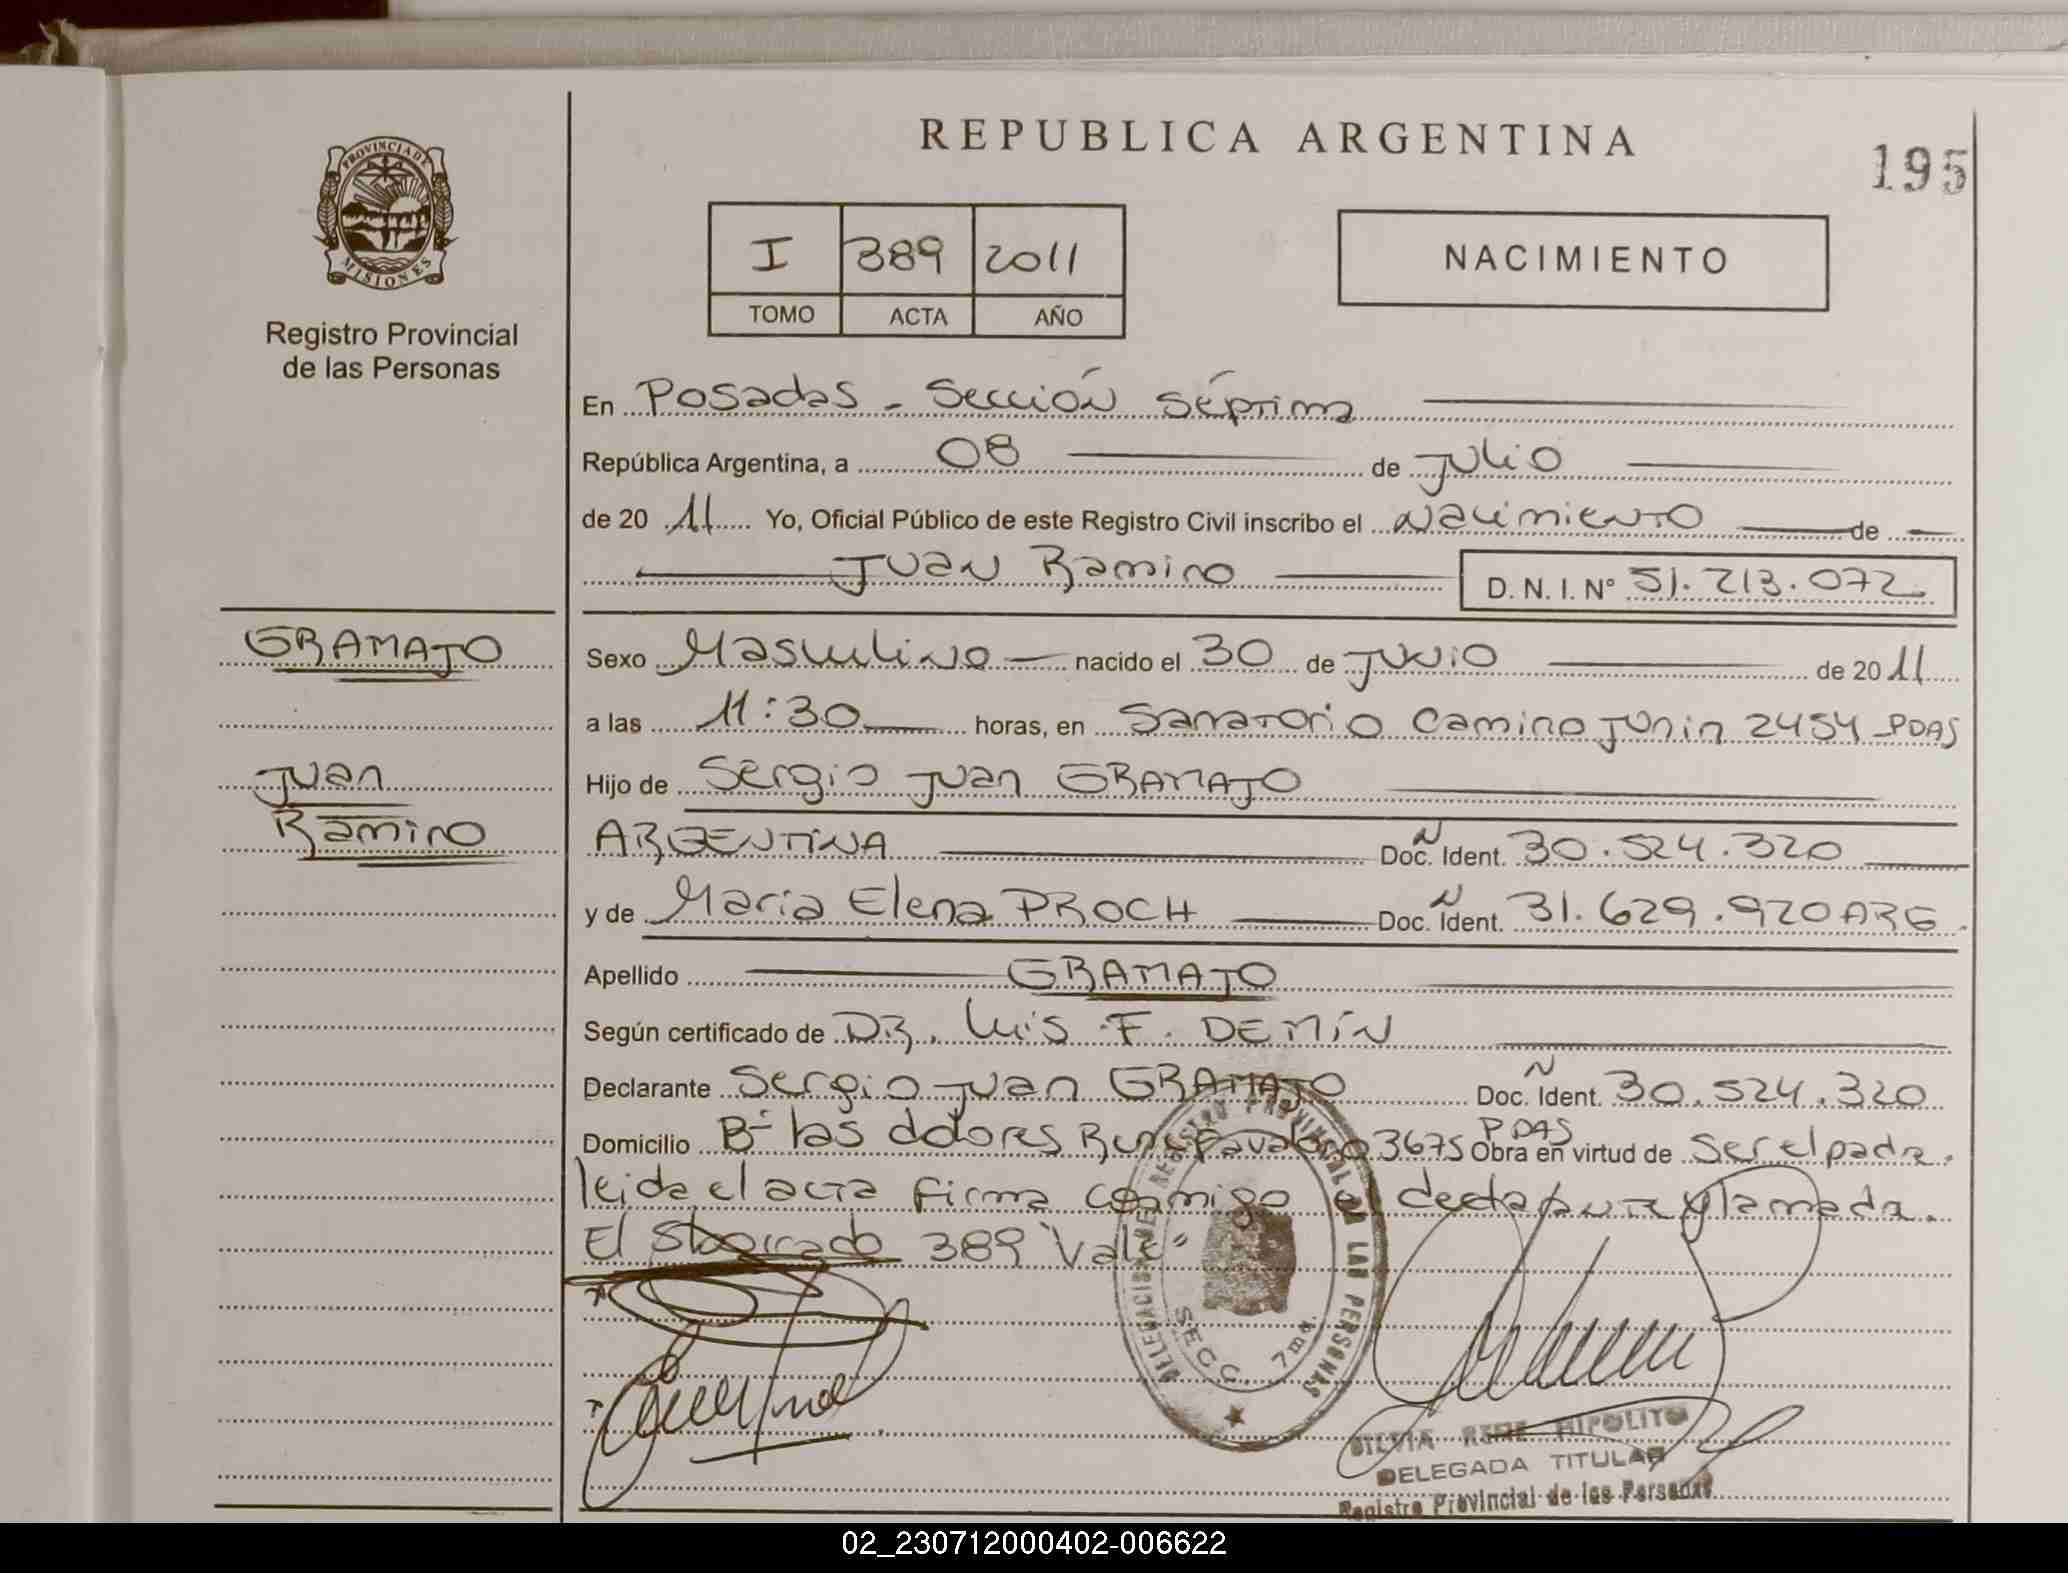 REPUBLICA ARGENTINA
195
PROVINCIA DE
MISIONES
Registro Provincial
de las Personas
I 389 2011
TOMO ACTA AÑO
NACIMIENTO
En Posadas - Sección Séptima
República Argentina, a 08 de Julio
de 20 11 Yo, Oficial Público de este Registro Civil inscribo el Nacimiento de
Juan Ramiro D. N. I. Nº 51.213.072
GRAMAJO
Juan
Ramiro
Sexo Masculino nacido el 30 de Junio de 20 11
a las 11:30 horas, en Sanatorio Camino Junin 2454 PDAS
Hijo de Sergio Juan GRAMAJO
ARGENTINA Doc. Ident. 30.524.320
y de Maria Elena PROCH Doc. Ident. 31.629.920 ARG.
Apellido GRAMAJO
Según certificado de DR. Luis F. DEMÍN
Declarante Sergio Juan GRAMAJO Doc. Ident. 30.524.320
Domicilio Bº las dolores Favaloro 3675 PDAS Obra en virtud de ser el padre.
leida el acta firma conmigo el declarante y la madre.
El Sborrado 389 "Vale"
DELEGACION REGISTRO PROVINCIAL DE LAS PERSONAS
SECC. 7ma.
SILVIA RENE HIPOLITO
DELEGADA TITULAR
Registro Provincial de las Personas
02_230712000402-006622